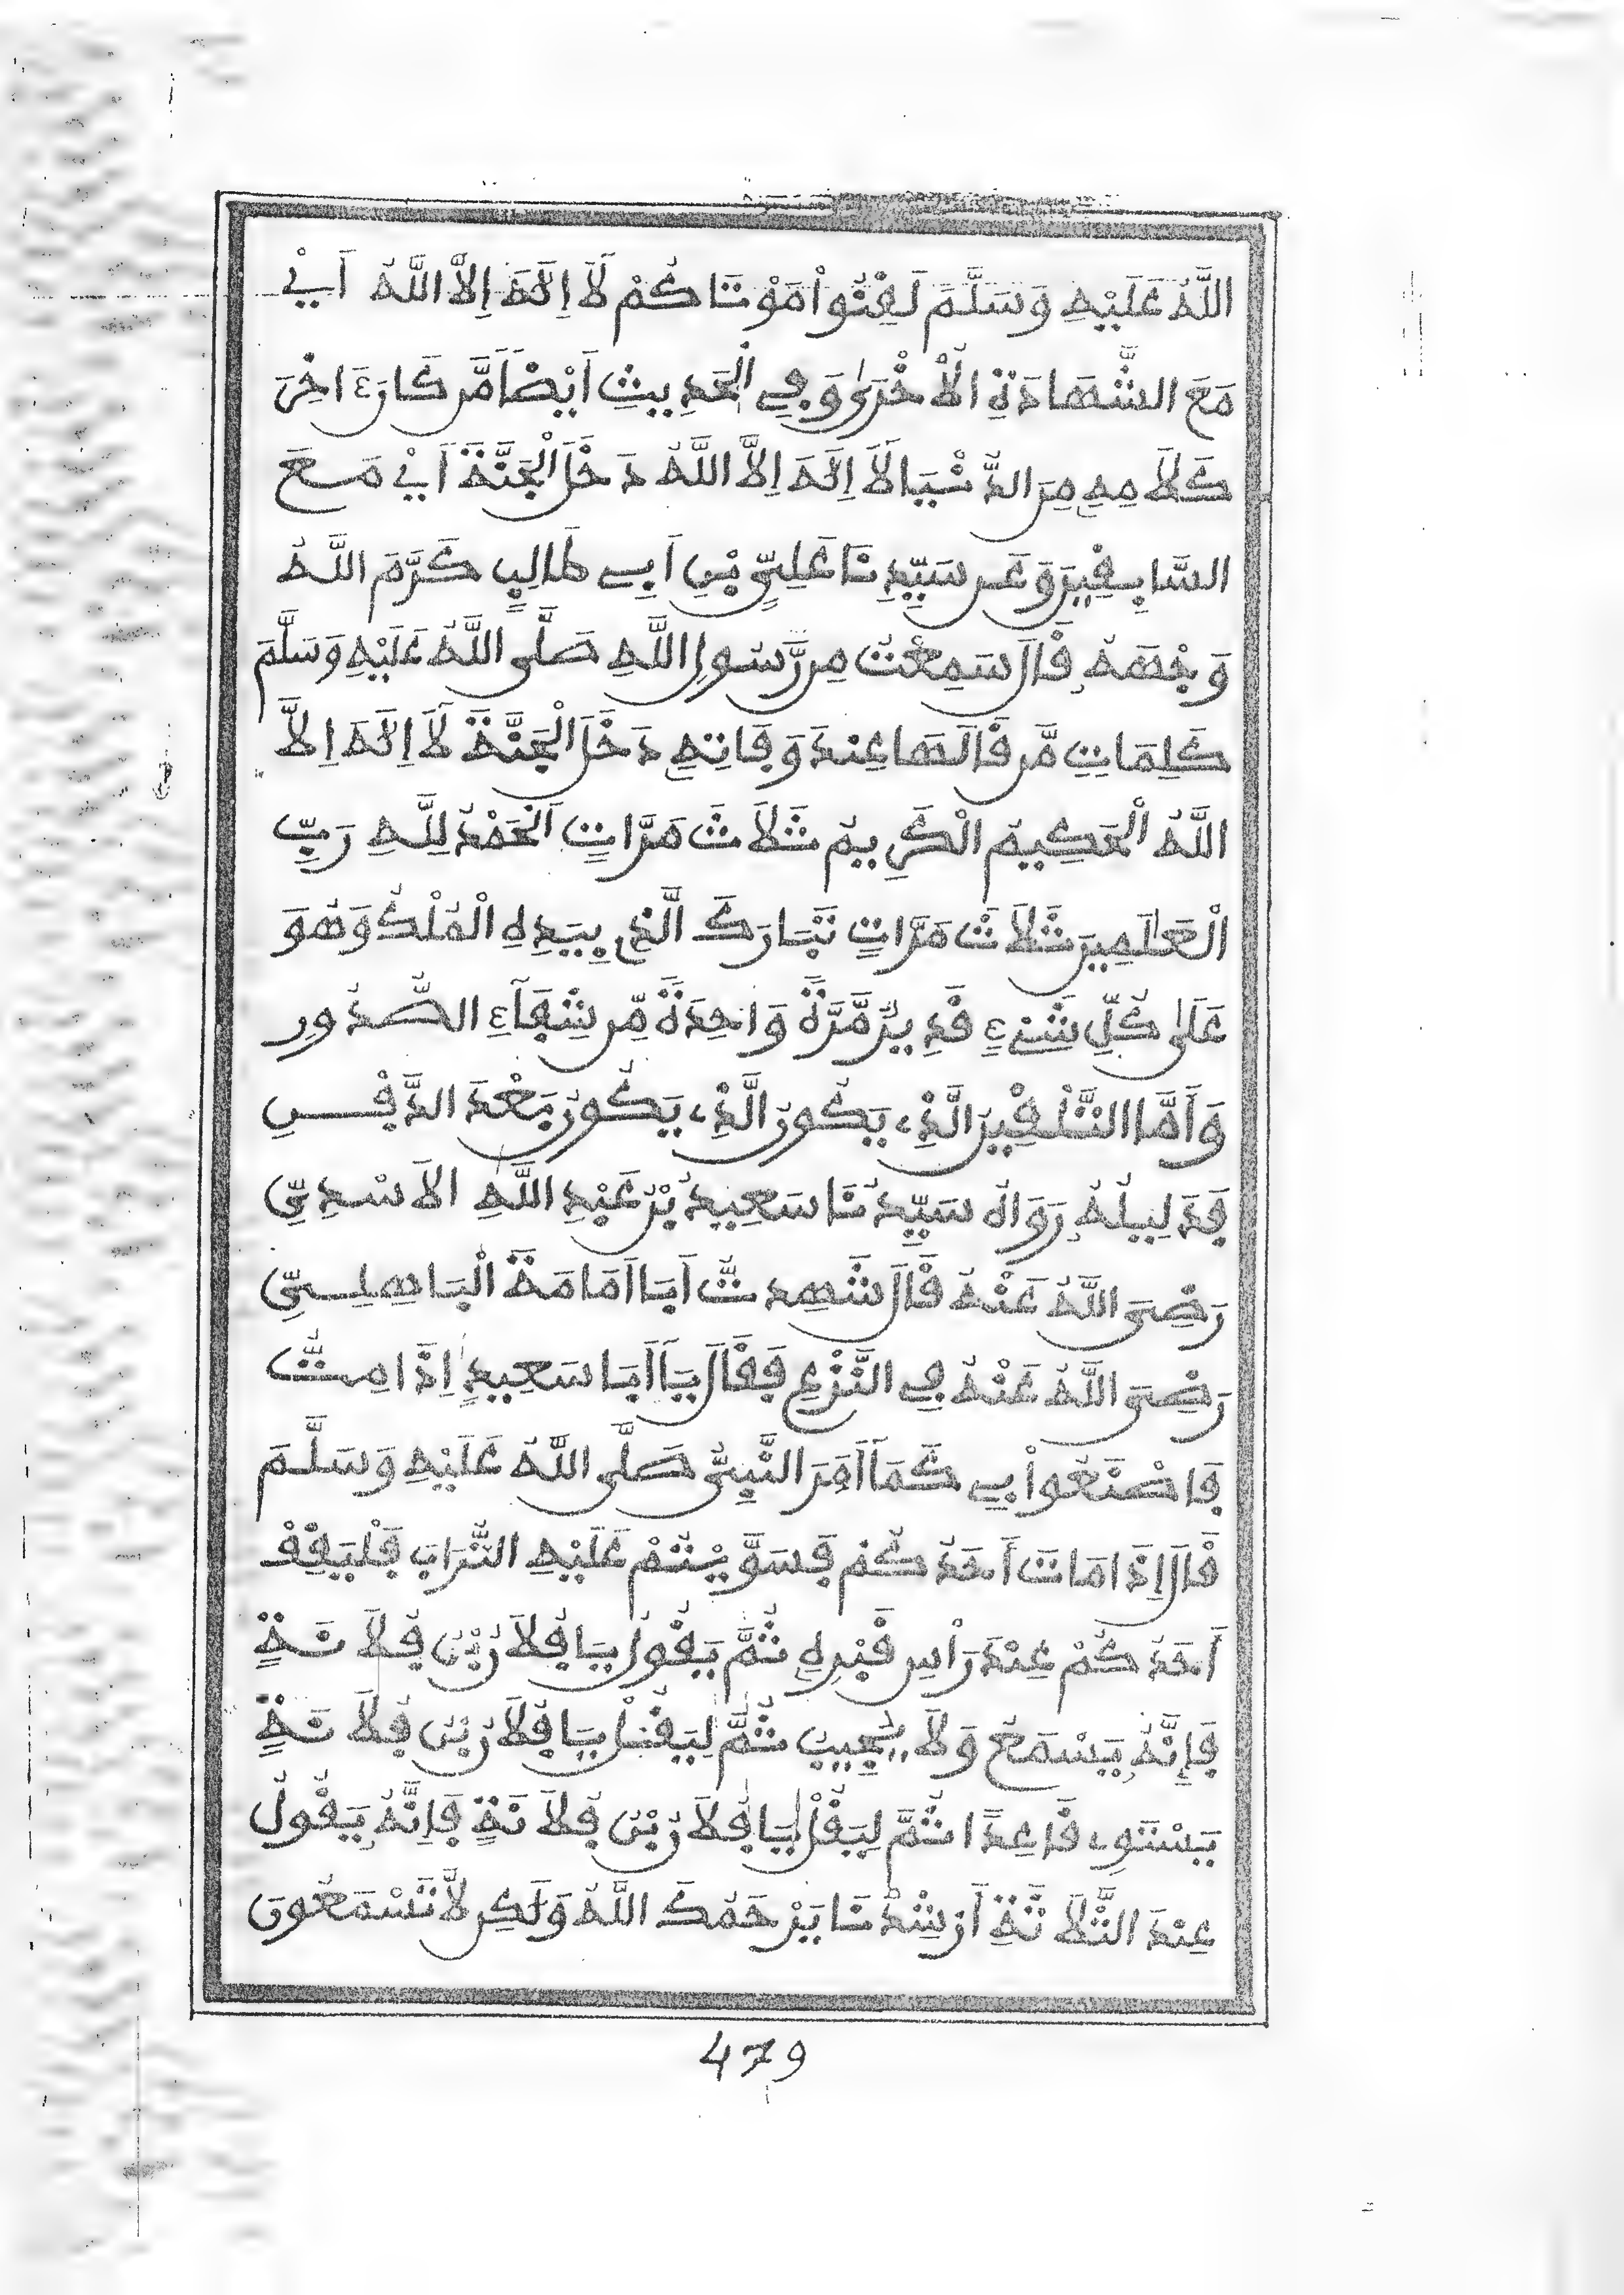 اللَّهُ عَلَيْهِ وَسَلَّمَ لَقِّنُواْ مَوْتَاكُمْ لَا إِلَهَ إِلاَّ اللَّهُ أَيْ
مَعَ الشَّهَادَةِ الْأُخْرَىٰ وَفِي الْحَدِيثِ أَيْضًا مَّن كَانَ ءَاخِرَ
كَلَامِهِ مِنَ الدُّنْيَا لَا إِلَهَ إِلاَّ اللَّهُ دَخَلَ الْجَنَّةَ أَيْ مَعَ
السَّابِقِينَ وَعَن سَيِّدِنَا عَلِيِّ بْنِ أَبِي طَالِبٍ كَرَّمَ اللَّهُ
وَجْهَهُ قَالَ سَمِعْتُ مِن رَّسُولِ اللَّهِ صَلَّى اللَّهُ عَلَيْهِ وَسَلَّمَ
كَلِمَاتٍ مَّن قَالَهَا عِندَ وَفَاتِهِ دَخَلَ الْجَنَّةَ لَا إِلَهَ إِلاَّ
اللَّهُ الْحَكِيمُ الْكَرِيمُ ثَلَاثَ مَرَّاتٍ الْحَمْدُ لِلَّهِ رَبِّ
الْعَٰلَمِينَ ثَلَاثَ مَرَّاتٍ تَبَارَكَ الَّذِي بِيَدِهِ الْمُلْكُ وَهُوَ
عَلَىٰ كُلِّ شَيْءٍ قَدِيرٌ مَّرَّةً وَاحِدَةً مِّن شِفَآءِ الصُّدُورِ
وَأَمَّا التَّلْقِينُ الَّذِي يَكُونُ الَّذِي يَكُونُ بَعْدَ الدَّفْنِ
فَدَلِيلُهُ رَوَاهُ سَيِّدُنَا سَعِيدُ بْنُ عَبْدِ اللَّهِ الاَسْدِيِّ
رَضِيَ اللَّهُ عَنْهُ قَالَ شَهِدتُّ أَبَا أُمَامَةَ الْبَاهِلِيِّ
رَضِيَ اللَّهُ عَنْهُ فِي النَّزْعِ فَقَالَ يَا أَبَا سَعِيدٍ إِذَا مِتُّ
فَاصْنَعُواْ بِي كَمَا أَمَرَ النَّبِيُّ صَلَّى اللَّهُ عَلَيْهِ وَسَلَّمَ
قَالَ إِذَا مَاتَ أَحَدُكُمْ فَسَوَّيْتُمْ عَلَيْهِ التُّرَابَ فَلْيَقِفْ
أَحَدُكُمْ عِنْدَ رَأْسِ قَبْرِهِ ثُمَّ يَقُولُ يَا فُلَانُ بْنُ فُلَانَةٍ
فَإِنَّهُ يَسْمَعُ وَلَا يُجِيبُ ثُمَّ لِيَقُلْ يَا فُلَانُ بْنُ فُلَانَةٍ
يَسْتَوِي قَاعِدًا ثُمَّ لِيَقُلْ يَا فُلَانُ بْنُ فُلَانَةٍ فَإِنَّهُ يَقُولُ
عِنْدَ الثَّلَاثَةِ أَرْشِدْنَا يَرْحَمُكَ اللَّهُ وَلَكِن لاَّ تَسْمَعُونَ
479